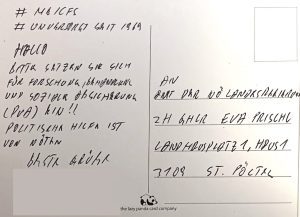 # ME/CFS
# UNVERSORGT SEIT 1969
HALLO
BITTE SETZEN SIE SICH
FÜR FORSCHUNG,
UND SOZIALE ABSICHERUNG
(PVA) EIN!!
POLITISCHE HILFE IST
VON NÖTEN
BESTE GRÜSSE
AN
AMT DER NÖ LANDESREGIERUNG
ZH EVA PRISCHL
LANDHAUSPLATZ 1, HAUS 1
3109 ST. PÖLTEN
the lazy panda card company